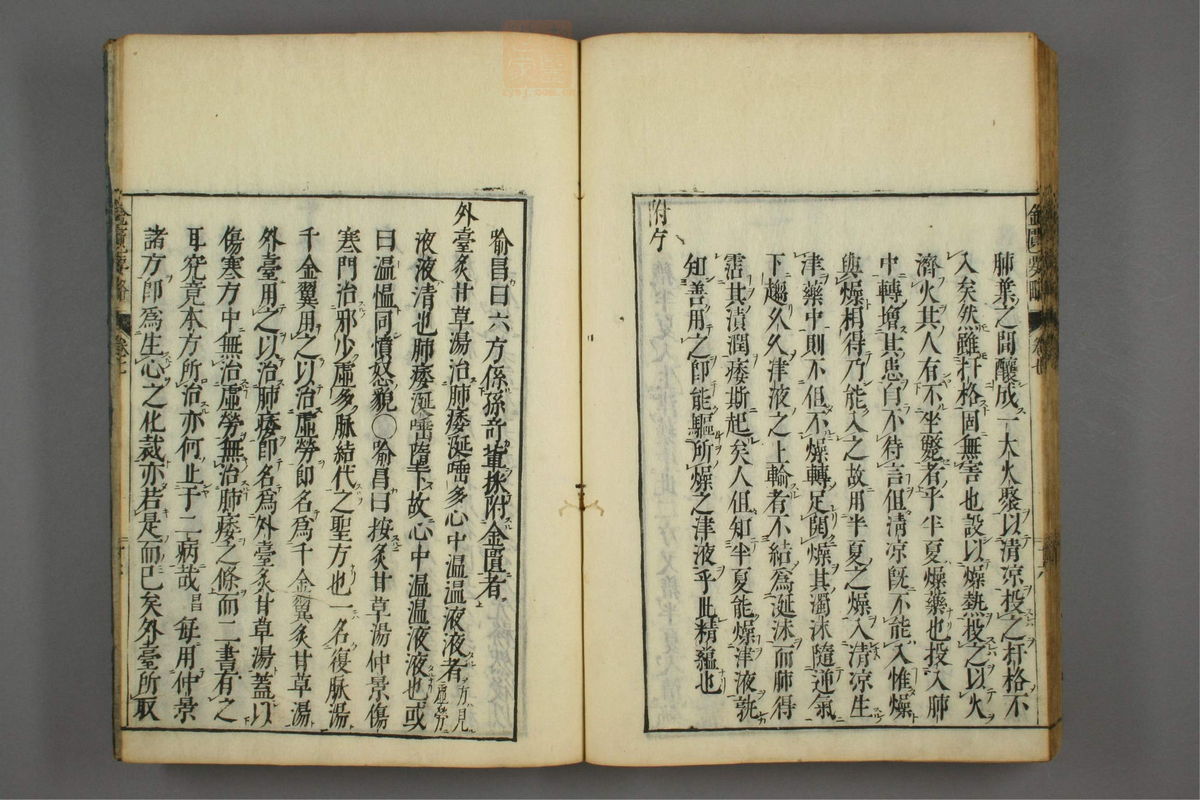 肺葉之間釀成一大火聚以清凉投之扞格不
入矣然雖扞格固無害也設以燥熱投之以火
濟火其人有不坐斃者乎半夏燥藥也投入肺
中轉增其患自不待言但清凉既不能入惟燥
與燥相得乃能入之故用半夏之燥入清凉生
津藥中則不但不燥轉足開燥其濁沫隨逆氣
下趨久久津液之上輸者不結為涎沫而肺得
霑其漬潤痿斯起矣人但知半夏能燥津液孰
知善用之即能驅所燥之津液乎此精蘊也
附方
喻昌曰六方係孫奇輩採附金匱者
外臺炙甘草湯治肺痿涎唾多心中温温液液者方見虛勞
液液清也肺痿涎唾墮下故心中温温液液也或
曰温愠同憤怒貌〇喻昌曰按炙甘草湯仲景傷
寒門治邪少虛多脉結代之聖方也一名復脉湯
千金翼用之以治虛勞即名為千金翼炙甘草湯
外臺用之以治肺痿即名為外臺炙甘草湯蓋以
傷寒方中無治虛勞無治肺痿之條而二書有之
耳究竟本方所治亦何止于二病哉昌每用仲景
諸方即為生心之化裁亦若是而已矣外臺所取
金匱要略